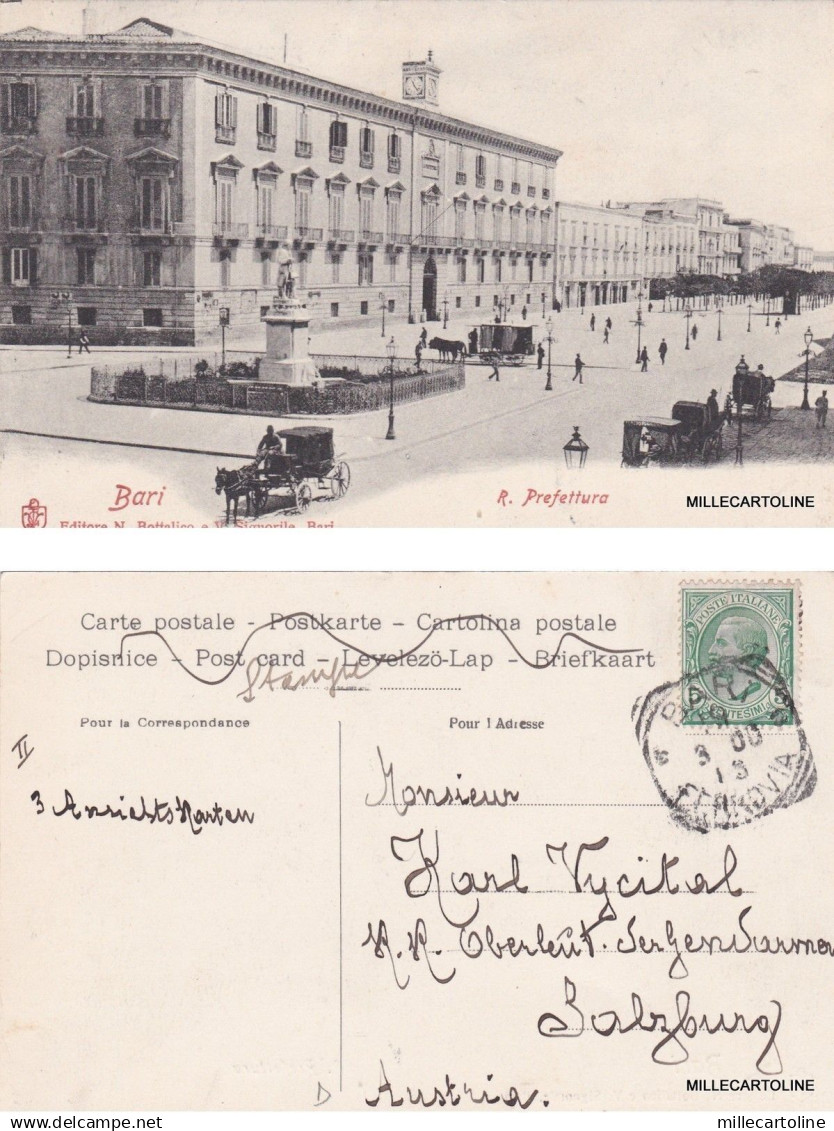 Bari
R. Prefettura
MILLECARTOLINE
Editore N. Bottalico e V. Signorile, Bari
Carte postale - Postkarte - Cartolina postale
Dopisnice - Post card - Levelezö-Lap - Briefkaart
Stampe
Pour la Correspondance
Pour l Adresse
POSTE ITALIANE
5 CENTESIMI 5
BARI
FERROVIA
II
3 Ansichtskarten
Monsieur
Karl Vycital
K. K. Oberleut. der Gendarmer
Salzburg
Austria.
MILLECARTOLINE
delcampe.net
millecartoline